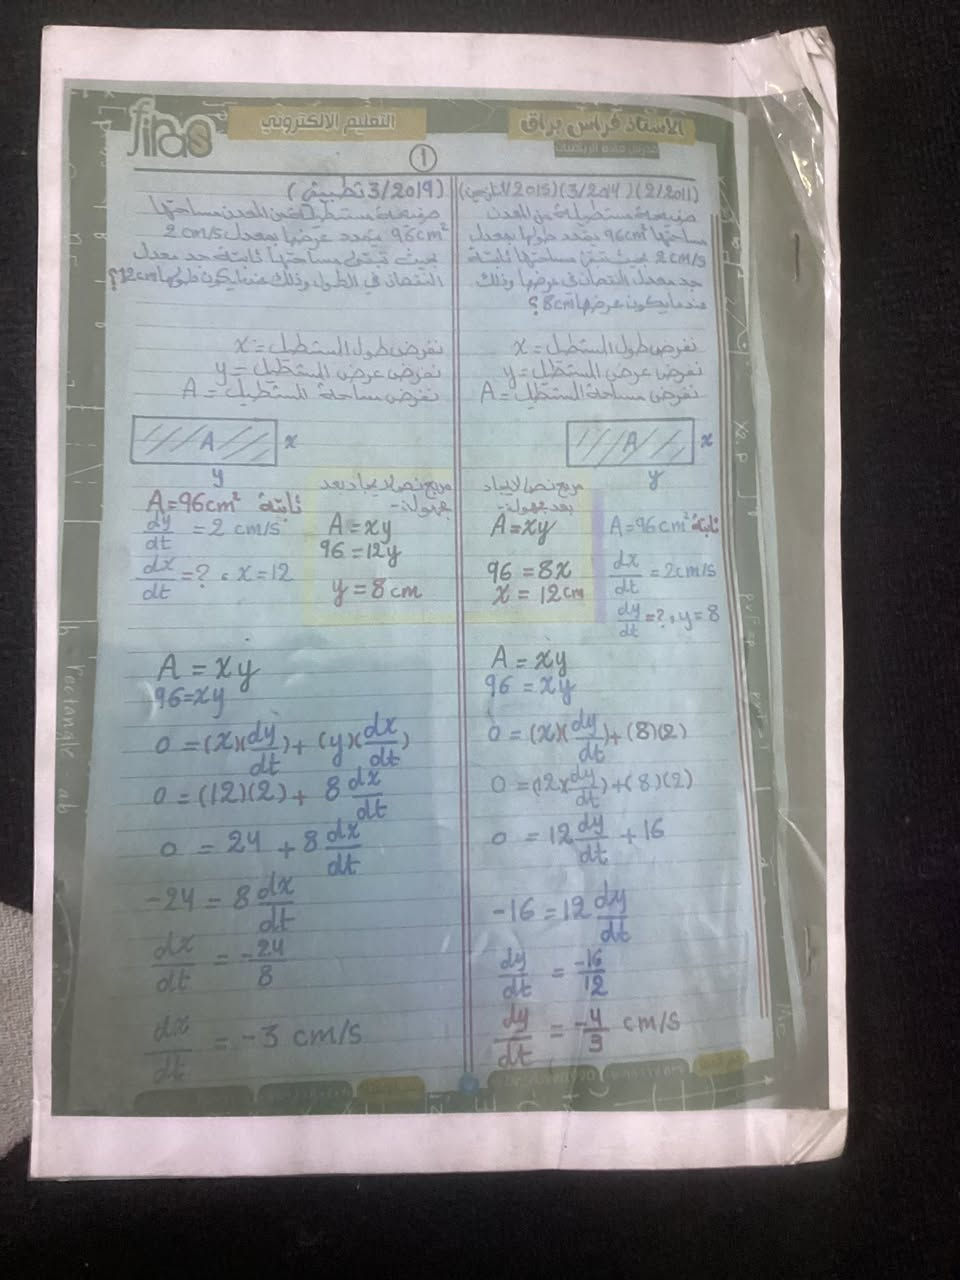 الاستاذ فراس براق
مدرس مادة الرياضيات
التعليم الالكتروني
firas
1
(2/2011) (3/2014) (1/2015)
صفيحة مستطيلة من المعدن
مساحتها 96cm² يتمدد طولها بمعدل
2cm/s بحيث تبقى مساحتها ثابتة
جد معدل النقصان في عرضها وذلك
عندما يكون عرضها 8cm؟
نفرض طول المستطيل = x
نفرض عرض المستطيل = y
نفرض مساحة المستطيل = A
A x
y
A=96cm² ثابتة
dx/dt = 2cm/s
dy/dt = ? , y=8
بعد مجهولة-
A=xy
96 = 8x
x = 12cm
A = xy
96 = xy
0 = (x)(dy/dt)+(8)(2)
0 = (12)(dy/dt)+(8)(2)
0 = 12 dy/dt + 16
-16 = 12 dy/dt
dy/dt = -16/12
dy/dt = -4/3 cm/s
(3/2019 تطبيقي)
صفيحة مستطيلة من المعدن مساحتها
96cm² يتمدد عرضها بمعدل 2cm/s
بحيث تبقى مساحتها ثابتة جد معدل
النقصان في الطول وذلك عندما يكون طولها 12cm؟
نفرض طول المستطيل = x
نفرض عرض المستطيل = y
نفرض مساحة المستطيل = A
A x
y
A=96cm² ثابتة
dy/dt = 2 cm/s
dx/dt = ? , x=12
مجهولة-
A=xy
96=12y
y = 8cm
A = xy
96=xy
0 = (x)(dy/dt)+(y)(dx/dt)
0 = (12)(2)+ 8 dx/dt
0 = 24 + 8 dx/dt
-24 = 8 dx/dt
dx/dt = -24/8
dx/dt = -3 cm/s
rectangle ab